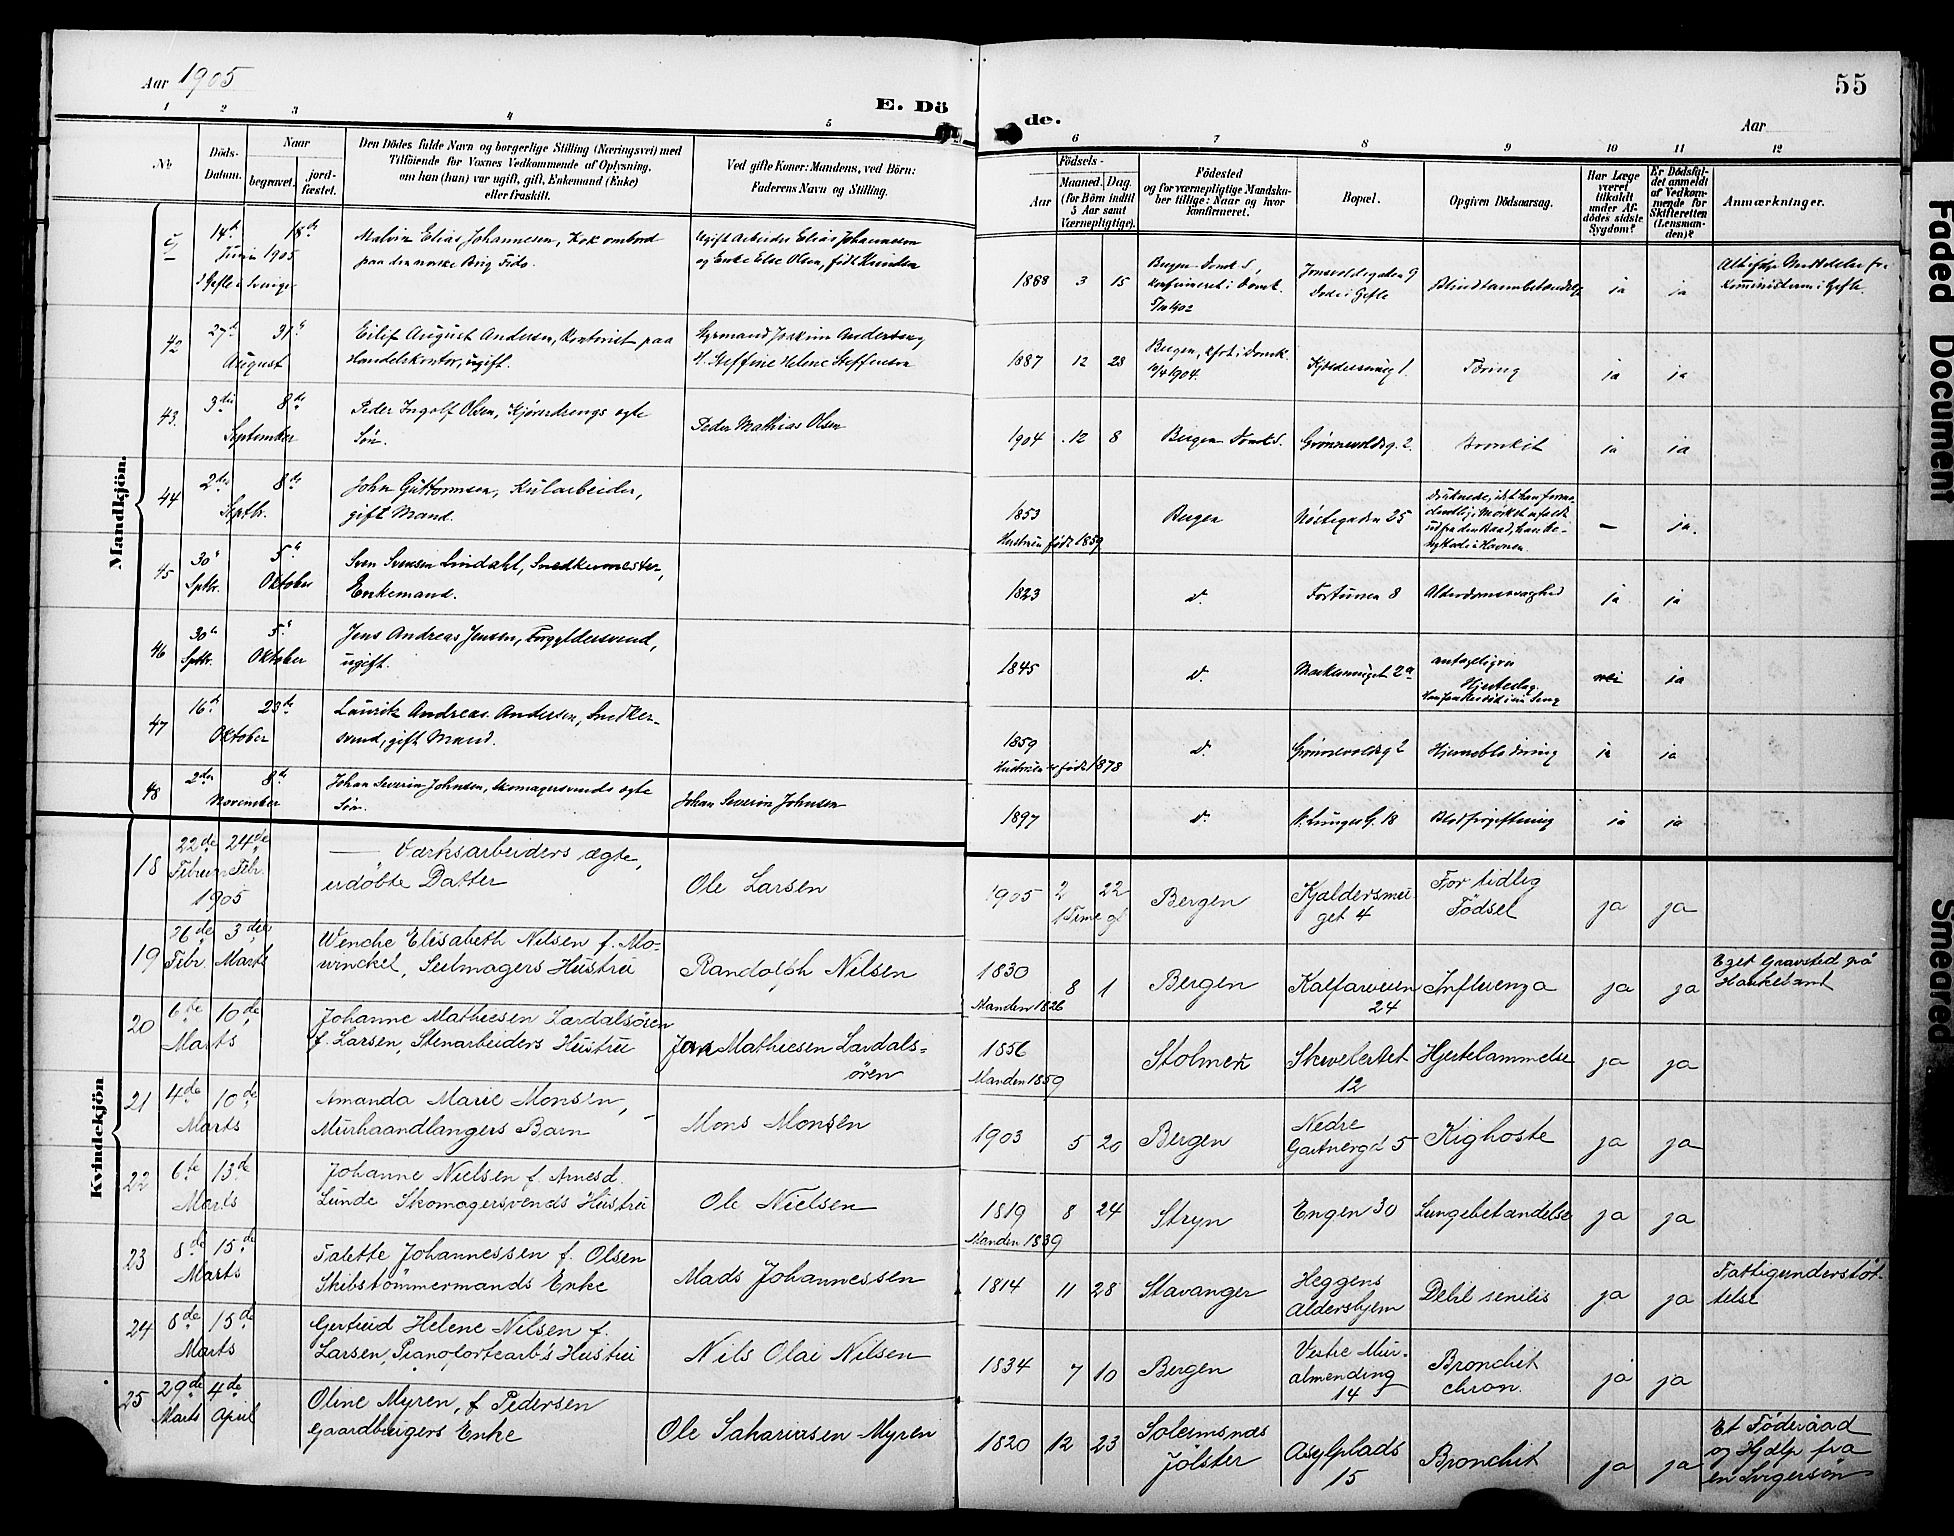 Aar 1905
E. Dö
de.
55
Aar
1 2 3 4 5
6 7 8 9 10 11 12
No
Döds-
Datum.
Naar
begravet.
jord-
fæstet.
Den Dödes fulde Navn og borgerlige Stilling (Næringsvei) med
Tilföiende for Voxnes Vedkommende af Oplysning,
om han (hun) var ugift, gift, Enkemand (Enke)
eller fraskilt.
Ved gifte Koner: Mandens, ved Börn:
Faderens Navn og Stilling.
Födsels-
Aar
Maaned.
Dag.
(for Börn indtil
5 Aar samt
Værnepligtige).
Födested
og for værnepligtige Mandska-
ber tillige: Naar og hvor
konfirmeret.
Bopæl.
Opgiven Dödsaarsag.
Har Læge
været
tilkaldt
under Af-
dödes sidste
Sygdom?
Er Dödsfal-
det anmeldt
af Vedkom-
mende for
Skifteretten
(Lensman-
den)?
Anmærkninger.
Mandkjön.
14de 18de
Juni 1905
Gefle i Sverige
Malvin Elias Johannesen, Kok ombord
paa den norske Brig Fido.
Ugift Arbeider Elias Johannesen
og Enke Else Olsen, født Knudsen
1888 3 15
Bergen Domk. S,
konfirmeret i Domk.
1902
Jonsvoldsgaden 9
Døde i Gefle
Blindtarmbetændelse
ja ja
42
27de 31te
August
Eilif August Andersen, Kontorist paa
Handelskontor, ugift.
Styrmand Joakim Andersen og
H. Steffine Helene Steffensen
1887 12 28
Bergen, kfrt i Domk.
1904.
Tæring
ja ja
43.
3die 8de
September
Peder Ingolf Olsen, Kjøredrengs ægte
Søn.
Peder Mathias Olsen
1904 12 8
Bergen Domk S.
Grønnevoldsg. 2.
Bronkit
ja ja
44
2den 8de
Septbr.
John Guttormsen, Kularbeider,
gift Mand.
1853
Hustruen født 1859
Bergen
Nøstegaden 25
druknede, idet han formo-
dentlig i Mørket er faldt
ud fra den Baad, han be-
nyttede i Havnen.
— ja.
45
30te 5te
Sptbr. Oktober
Sven Svensen Lindahl, Snedkermester,
Enkemand.
1823
d.
Fortunen 8
Alderdomssvaghed
ja ja
46
30te 5te
Sptbr. Oktober
Jens Andreas Jensen, Forgyldersvend,
ugift.
1845
d.
Marksmuget 2a
antagelig
Hjerteslag.
nei ja
47
16de 23de
Oktober
Lauritz Andreas Andersen, Snedker-
svend, gift Mand.
1859
Hustruen er født 1878
d.
Grønnevoldsg 2
Hjerneblødning
ja ja
48
2den 8de
November
Johan Severin Johnsen, Skomagersvends ægte
Søn.
Johan Severin Johnsen
1897
d.
V. Lunges G. 18
Blodforgiftning
ja ja
Kvindekjön
18
22de 24de
Februar Febr.
1905
— Værksarbeiders ægte,
udøbte Datter
Ole Larsen
1905 2 22
1 Time gl
Bergen
Kjældersmu-
get 4
For tidlig
Fødsel
ja ja
19
26de 3die
Febr. Marts
Wenche Elisabeth Nilsen f. Mo-
winckel, Seilmagers Hustru
Randolph Nilsen
1830 8 1
Manden 1826
Bergen
Kalfarveien
24
Influenza
ja ja
Eget Gravsted på
20
6te 10de
Marts
Johanne Mathiesen Lærdalsøren
f. Larsen, Stenarbeiders Hustru
Jon Mathiesen Lærdals-
øren
1856
Manden 1859
Stolmen
Skivebakken
12
Hjertelammelse
ja ja
21
4de 10de
Marts
Amanda Marie Monsen,
Murhaandlangers Barn
Mons Monsen
1903 5 20
Bergen
Nedre
Gartnergd 5
Kighoste
ja ja
22
6te 13de
Marts
Johanne Nielsen f. Arnesd.
Lunde Skomagersvends Hustru
Ole Nielsen
1819 8 24
Manden 1839
Stryn
Engen 30
Lungebetændelse
ja ja
23
8de 15de
Marts
Talette Johannessen f. Olsen
Skibstømmermands Enke
Mads Johannessen
1814 11 28
Stavanger
Heggens
Aldershjem
Debil. senilis
ja ja
Fattigunderstøt-
telse
24
8de 15de
Marts
Gertrud Helene Nilsen f.
Larsen, Pianofortearb's Hustru
Nils Olai Nilsen
1834 7 10
Bergen
Vestre Mur-
almending
14
Bronchit
chron.
ja ja
25
29de 4de
Marts April
Oline Myren, f Pedersen
Gaardbrugers Enke
Ole Sahariasen Myren
1820 12 23
Soleimsnæs
Jølster
Asylplads
15
Bronchit
ja ja
Et Føderåad
og Hjælp fra
en Svigersøn
Faded Document
Smeared